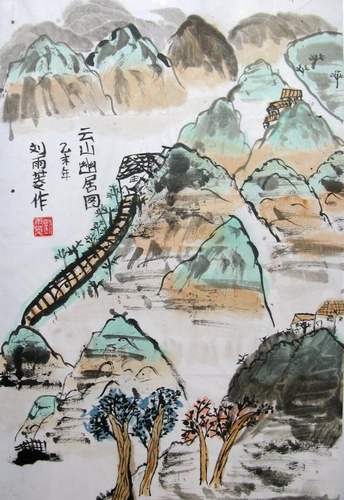 云山幽居图
乙未年
刘雨作